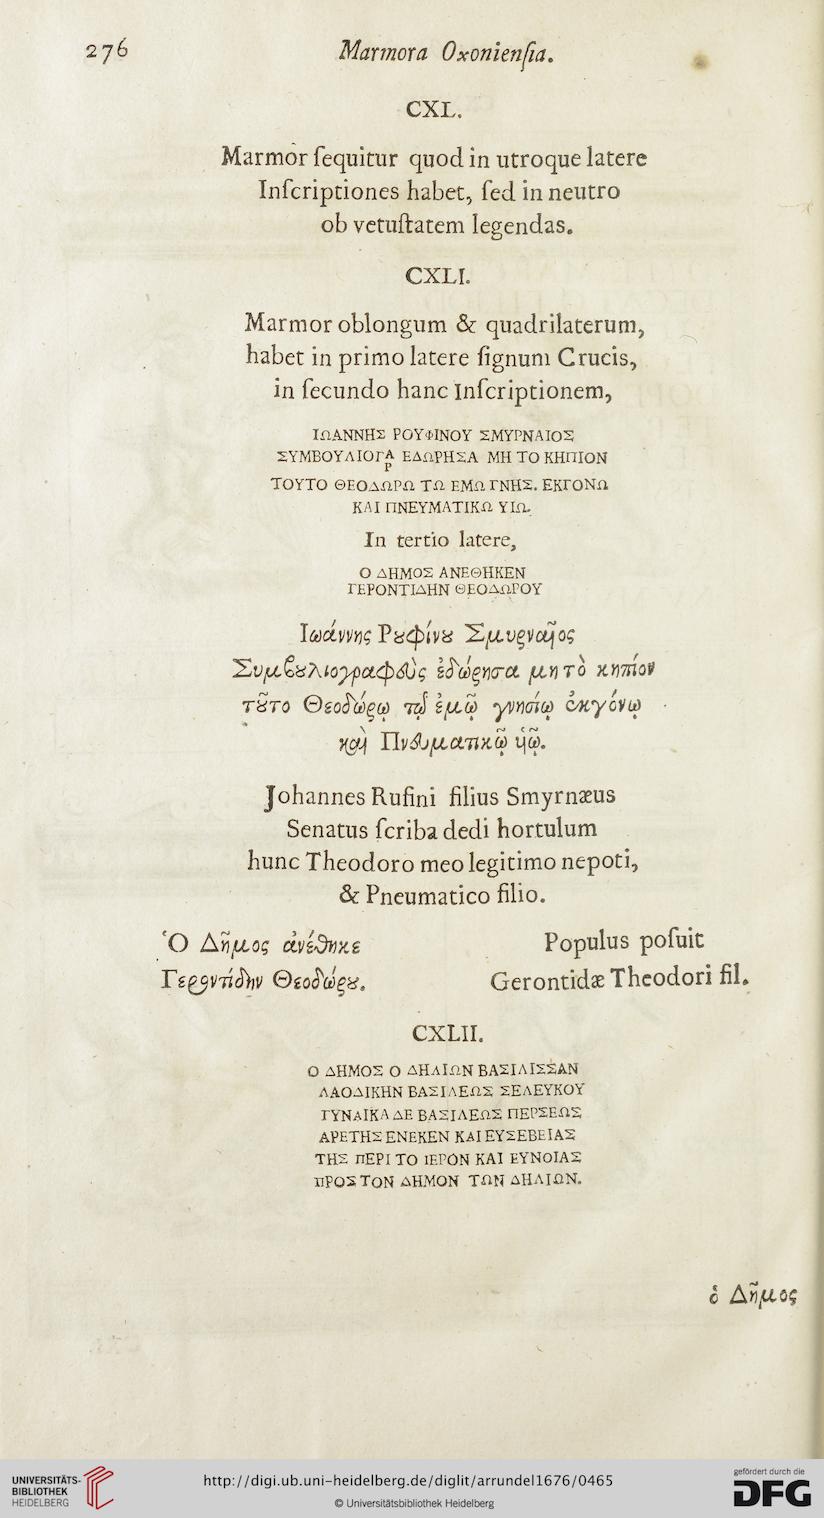 276 Marmora Oxoniensia.
CXL.
Marmor ſequitur quod in utroque latere
Inſcriptiones habet, ſed in neutro
ob vetuſtatem legendas.
CXLI.
Marmor oblongum & quadrilaterum,
habet in primo latere ſignum Crucis,
in ſecundo hanc Inſcriptionem,
ΙΩΑΝΝΗΣ ΡΟΥΦΙΝΟΥ ΣΜΥΡΝΑΙΟΣ
ΣΥΜΒΟΥΛΙΟΓΑΡ ΕΔΩΡΗΣΑ ΜΗ ΤΟ ΚΗΠΙΟΝ
ΤΟΥΤΟ ΘΕΟΔΩΡΩ ΤΩ ΕΜΩ ΓΝΗΣ. ΕΚΓΟΝΩ
ΚΑΙ ΠΝΕΥΜΑΤΙΚΩ ΥΙΩ.
In tertio latere,
Ο ΔΗΜΟΣ ΑΝΕΘΗΚΕΝ
ΓΕΡΟΝΤΙΔΗΝ ΘΕΟΔΩΡΟΥ
Ἰωάννης Ρȣφίνȣ Σμυρναῖος
Συμβȣλιογραφεὺς ἐδώρησα μη τὸ κηπίον
τȣ͂το Θεοδώρῳ τῷ ἐμῷ γνησίῳ ἐκγόνῳ
καὶ Πνευματικῷ ὑῷ.
Johannes Rufini filius Smyrnæus
Senatus ſcriba dedi hortulum
hunc Theodoro meo legitimo nepoti,
& Pneumatico filio.
Ὁ Δῆμος ἀνέθηκε
Γεροντίδην Θεοδώρȣ.
Populus poſuit
Gerontidæ Theodori fil.
CXLII.
Ο ΔΗΜΟΣ Ο ΔΗΛΙΩΝ ΒΑΣΙΛΙΣΣΑΝ
ΛΑΟΔΙΚΗΝ ΒΑΣΙΛΕΩΣ ΣΕΛΕΥΚΟΥ
ΓΥΝΑΙΚΑ ΔΕ ΒΑΣΙΛΕΩΣ ΠΕΡΣΕΩΣ
ΑΡΕΤΗΣ ΕΝΕΚΕΝ ΚΑΙ ΕΥΣΕΒΕΙΑΣ
ΤΗΣ ΠΕΡΙ ΤΟ ΙΕΡΟΝ ΚΑΙ ΕΥΝΟΙΑΣ
ΠΡΟΣ ΤΟΝ ΔΗΜΟΝ ΤΩΝ ΔΗΛΙΩΝ.
ὁ Δῆμος
UNIVERSITÄTS-
BIBLIOTHEK
HEIDELBERG
http://digi.ub.uni-heidelberg.de/diglit/arrundel1676/0465
© Universitätsbibliothek Heidelberg
gefördert durch die
DFG